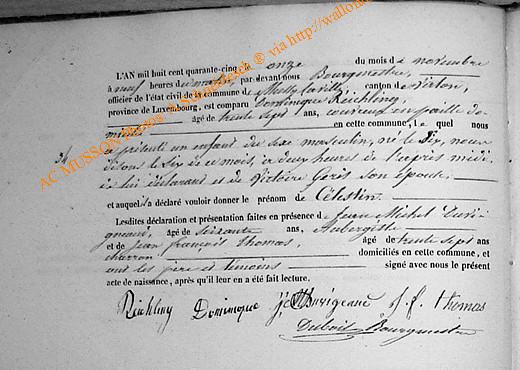 L'AN mil huit cent quarante-cinq, le onze du mois de novembre
à neuf heures du matin, par devant nous Bourgmestre,
officier de l'état civil de la commune de Mussy-la-ville canton de Virton,
province de Luxembourg, est comparu Dominique Reichling,
âgé de trente sept ans, couvreur en paille do-
micilié en cette commune, lequel nous
34 a présenté un enfant du sexe masculin, né le six, nous
disons le six de ce mois, à deux heures de l'après midi,
de lui déclarant et de Victoire Gérés son épouse
et auquel il a déclaré vouloir donner le prénom de Célestin.
Lesdites déclaration et présentation faites en présence de Jean Michel
âgé de soixante ans, Aubergiste
et de Jean françois thomas, âgé de trente sept ans
charron domiciliés en cette commune, et
ont les père et témoins signé avec nous le présent
acte de naissance, après qu'il leur en a été fait lecture.
Reichling Dominique J. f. thomas
Bourgmestre
AC MUSSON ® via http://wallon